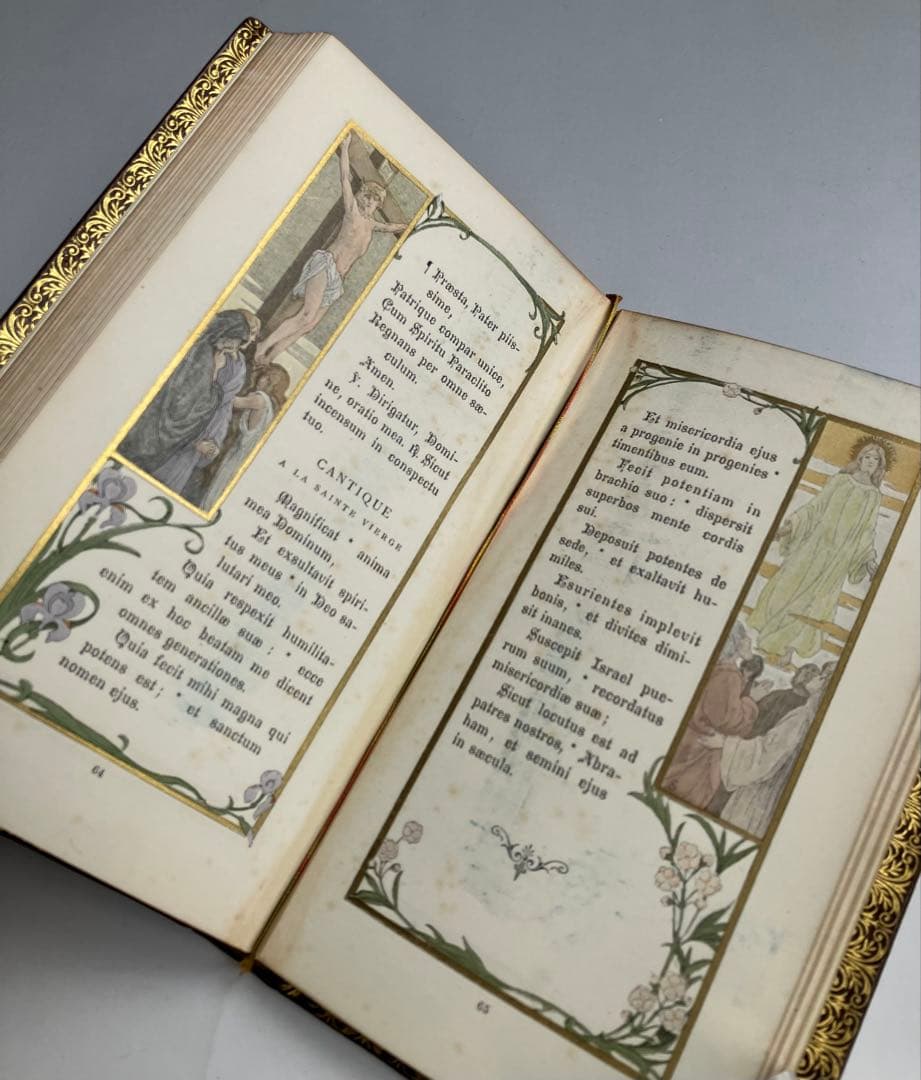 ¶ Præsta, Pater piis-
sime,
Patrique compar unice,
Cum Spiritu Paraclito
Regnans per omne sæ-
culum.
Amen.
℣. Dirigatur, Domi-
ne, oratio mea. ℟. Sicut
incensum in conspectu
tuo.
CANTIQUE
A LA SAINTE VIERGE
Magnificat * anima
mea Dominum,
Et exsultavit spiri-
tus meus * in Deo sa-
lutari meo.
Quia respexit humilita-
tem ancillæ suæ : * ecce
enim ex hoc beatam me dicent
omnes generationes.
Quia fecit mihi magna qui
potens est ; * et sanctum
nomen ejus.
64
Et misericordia ejus
a progenie in progenies *
timentibus eum.
Fecit potentiam in
brachio suo : * dispersit
superbos mente cordis
sui.
Deposuit potentes de
sede, * et exaltavit hu-
miles.
Esurientes implevit
bonis, * et divites dimi-
sit inanes.
Suscepit Israel pue-
rum suum, * recordatus
misericordiæ suæ ;
Sicut locutus est ad
patres nostros, * Abra-
ham, et semini ejus
in sæcula.
65